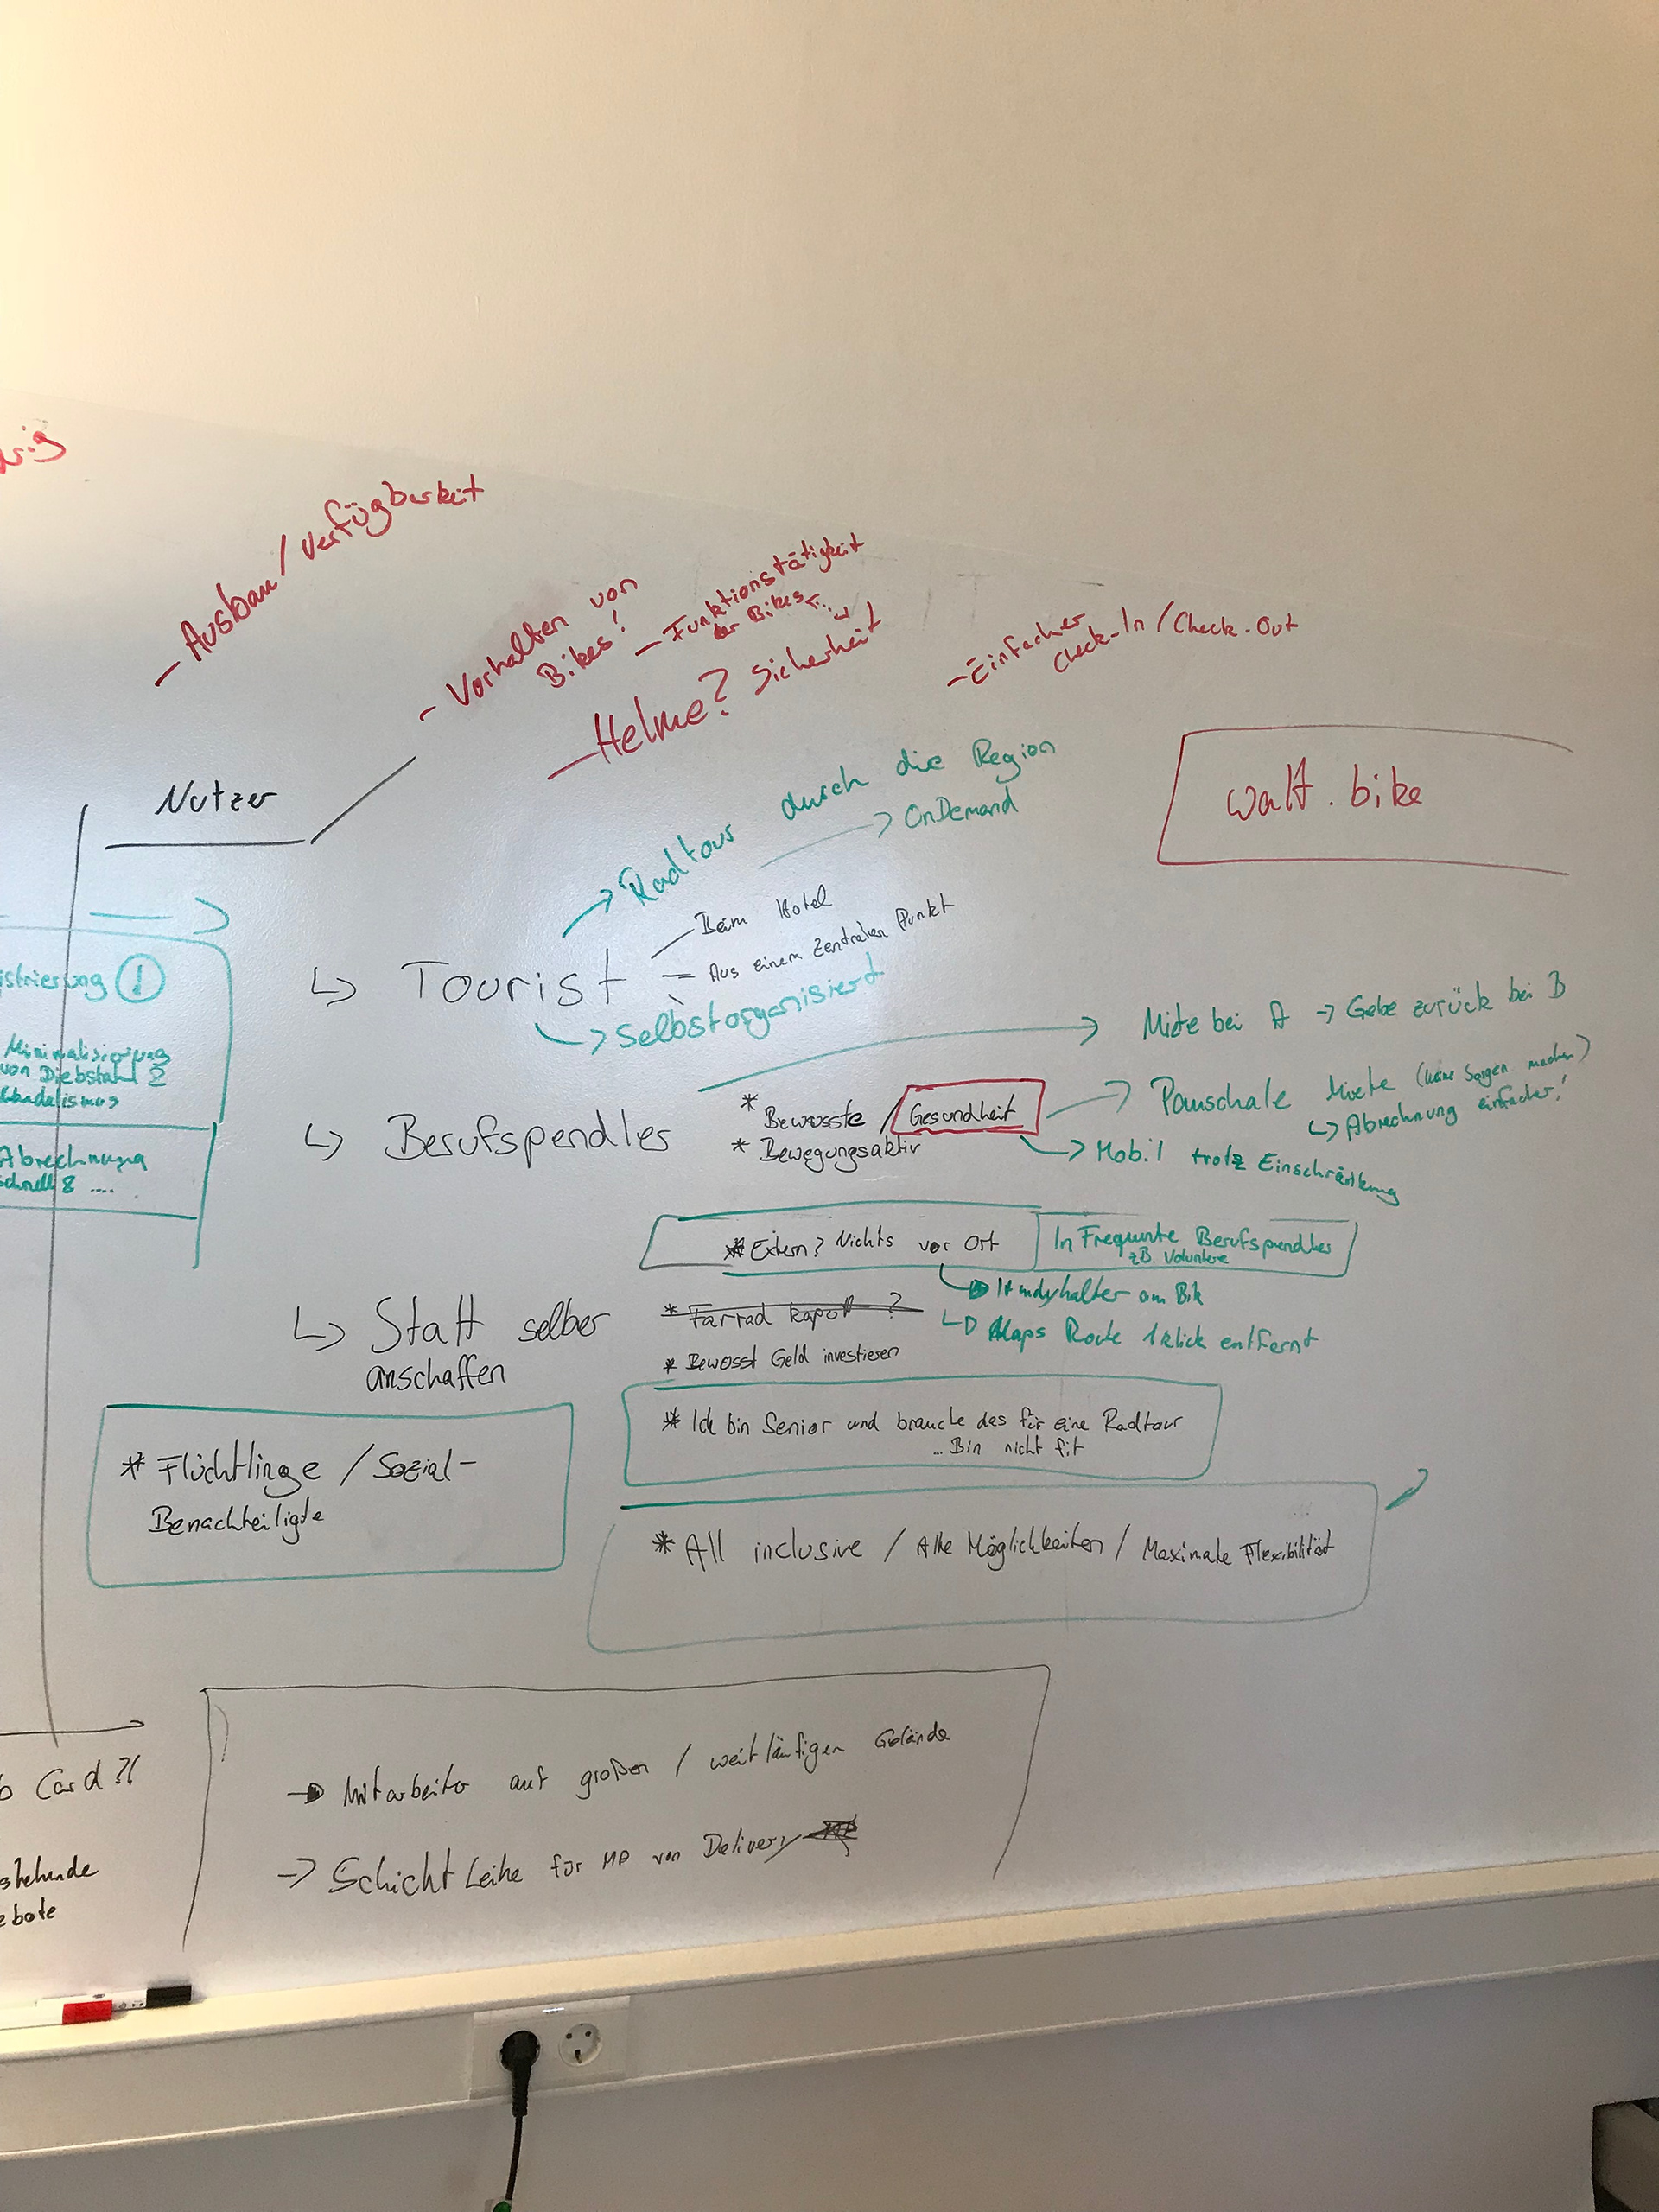 - Ausbau / Verfügbarkeit
- Vorhalten von
Bikes!
- Funktionstätigkeit
der Bikes
- Helme? Sicherheit
- Einfacher
Check-In / Check-Out
Nutzer
walt.bike
→ Radtour durch die Region
→ OnDemand
↳ Tourist
Beim Hotel
Aus einem Zentralen Punkt
→ Selbstorganisiert
→ Miete bei A → Gebe zurück bei B
↳ Berufspendler
* Bewusste / Gesundheit
* Bewegungsaktiv
→ Pauschale Miete (keine Sorgen machen)
↳ Abrechnung einfacher!
→ Mobil trotz Einschränkung
* Extern? Nichts vor Ort
In Frequente Berufspendler
zB. Voluntere
→ Handyhalter am Bik
↳ Maps Route 1 klick entfernt
↳ Statt selber
anschaffen
* Farrad kaputt ?
* Bewusst Geld investieren
* Ich bin Senior und brauche das für eine Radtour
... Bin nicht fit
* Flüchtlinge / Sozial-
Benachteiligte
* All inclusive / Alle Möglichkeiten / Maximale Flexibilität
→ Mitarbeiter auf großen / weitläufigen Gelände
→ Schicht Leihe für MA von Delivery
istrierung !
Minimalisierung
von Diebstahl &
Vandalismus
Abrechnung
schnell & ....
Card ?!
stehende
ebote